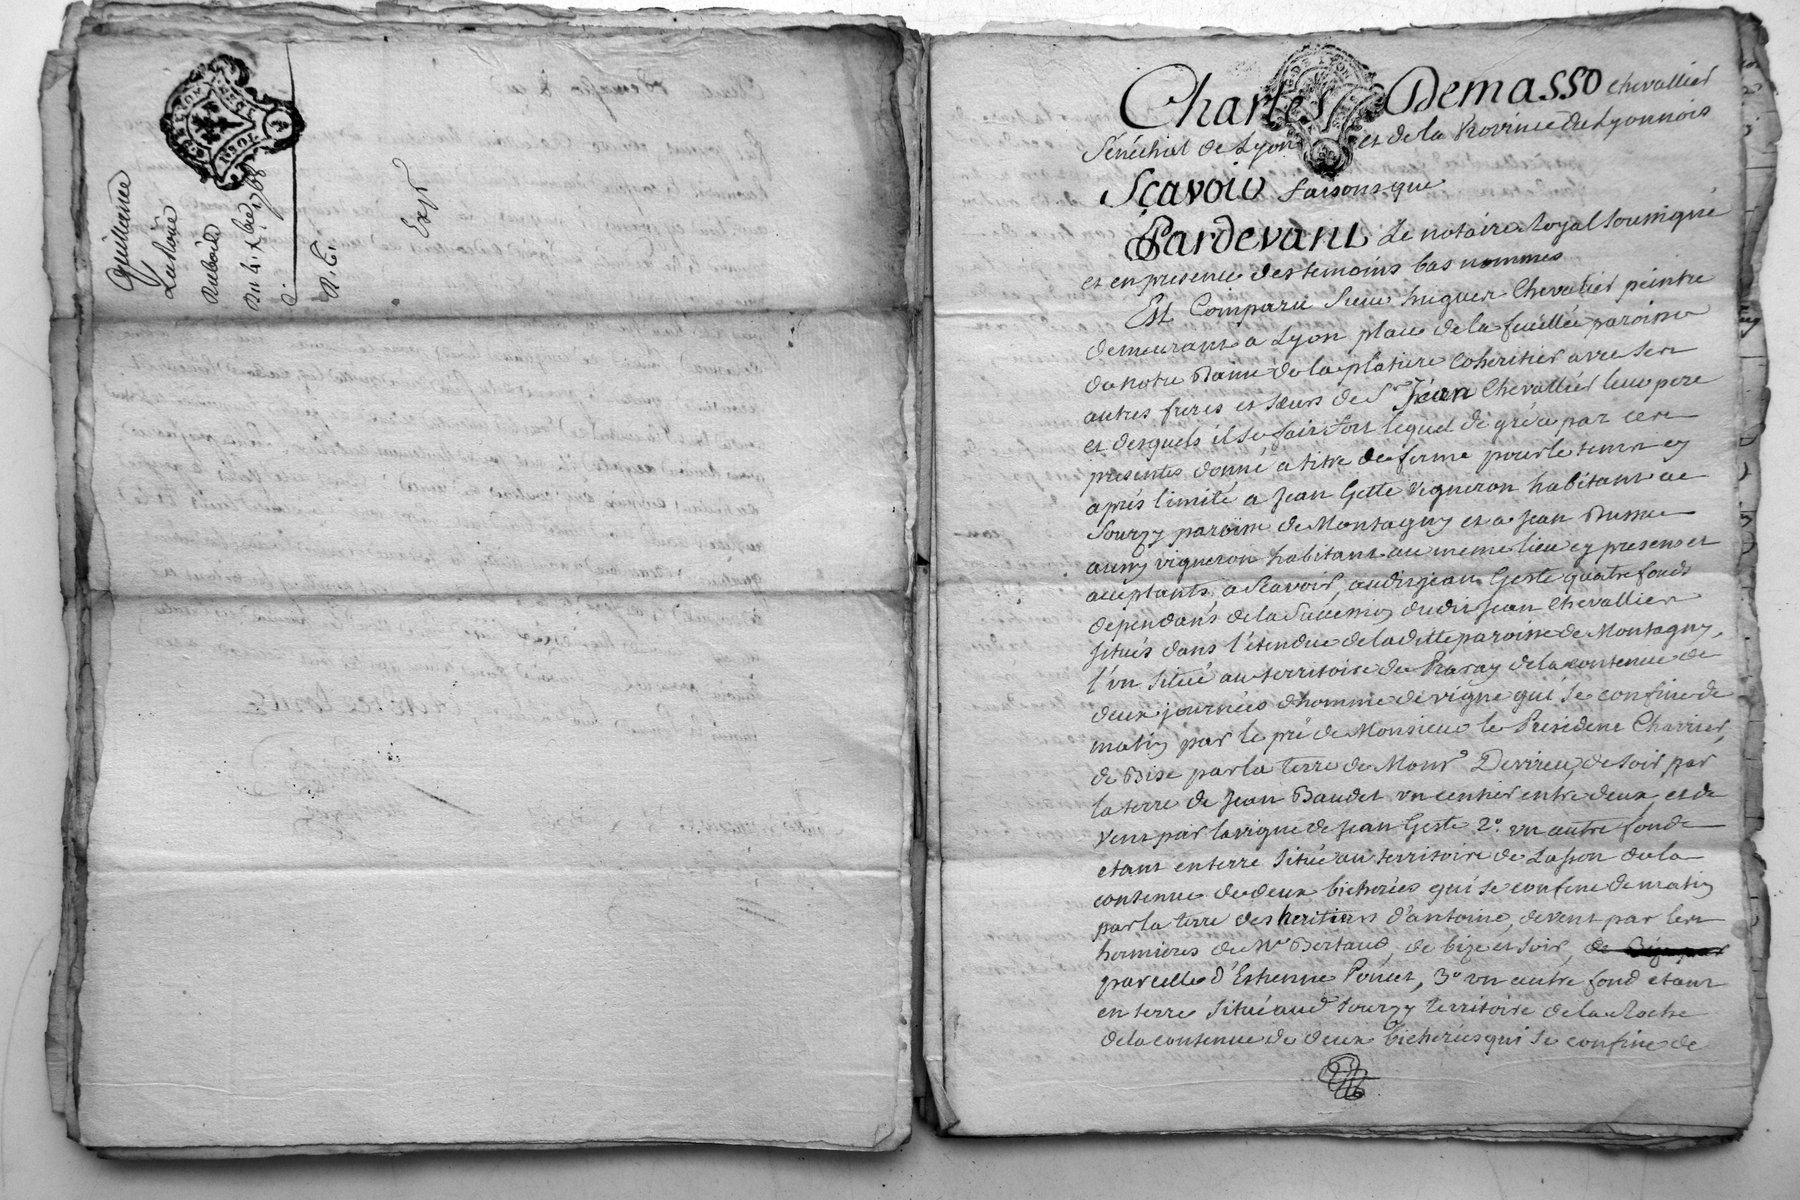 Quittance
Du 4. 7bre 1768
Exp.
Charles Demasso chevallier
Sénéchal de Lyon et de la Province du Lyonnois
Sçavoir faisons que
Pardevant Le notaire Royal soussigné
et en presence des temoins bas nommés
Est Comparu sieur hugues Chevalier peintre
demeurant a Lyon place de la feuillée paroisse
de notre Dame de la platiere Coheritier avec ses
autres freres et sœurs de Sr Jean Chevallier leur pere
et desquels il se fait fort lequel de gré a par ces
presentes donné a titre de ferme pour le tems cy
après limité a Jean Geste vigneron habitant de
Sourzy paroisse de Montagny et a Jean
aussy vigneron habitant au meme lieu cy presens et
acceptants, a Scavoir, audit jean Geste quatre fonds
dependans de la Succession dudit jean Chevallier
situés dans l'étendue de la ditte paroisse de Montagny,
l'un situé au territoire de Ravay de la contenue de
deux journées d'homme de vigne qui se confine de
matin par le pré de Monsieur le President Charrier,
de Bise par la terre de Monsr Devireu, de soir par
la terre de Jean Baudet un sentier entre deux, et de
Vent par la vigne de jean Geste 2º. un autre fonds
etant en terre situé au territoire de Lasson de la
contenue de deux bicherées qui se confine de matin
par la terre des heritiers d'antoine, de vent par les
hermieres de Mr Bertaud, de bize et soir,
par celle d'Estienne Poncet, 3º un autre fond etant
en terre situé aud. Sourzy territoire de la Roche
de la contenue de deux bicherées qui se confine de